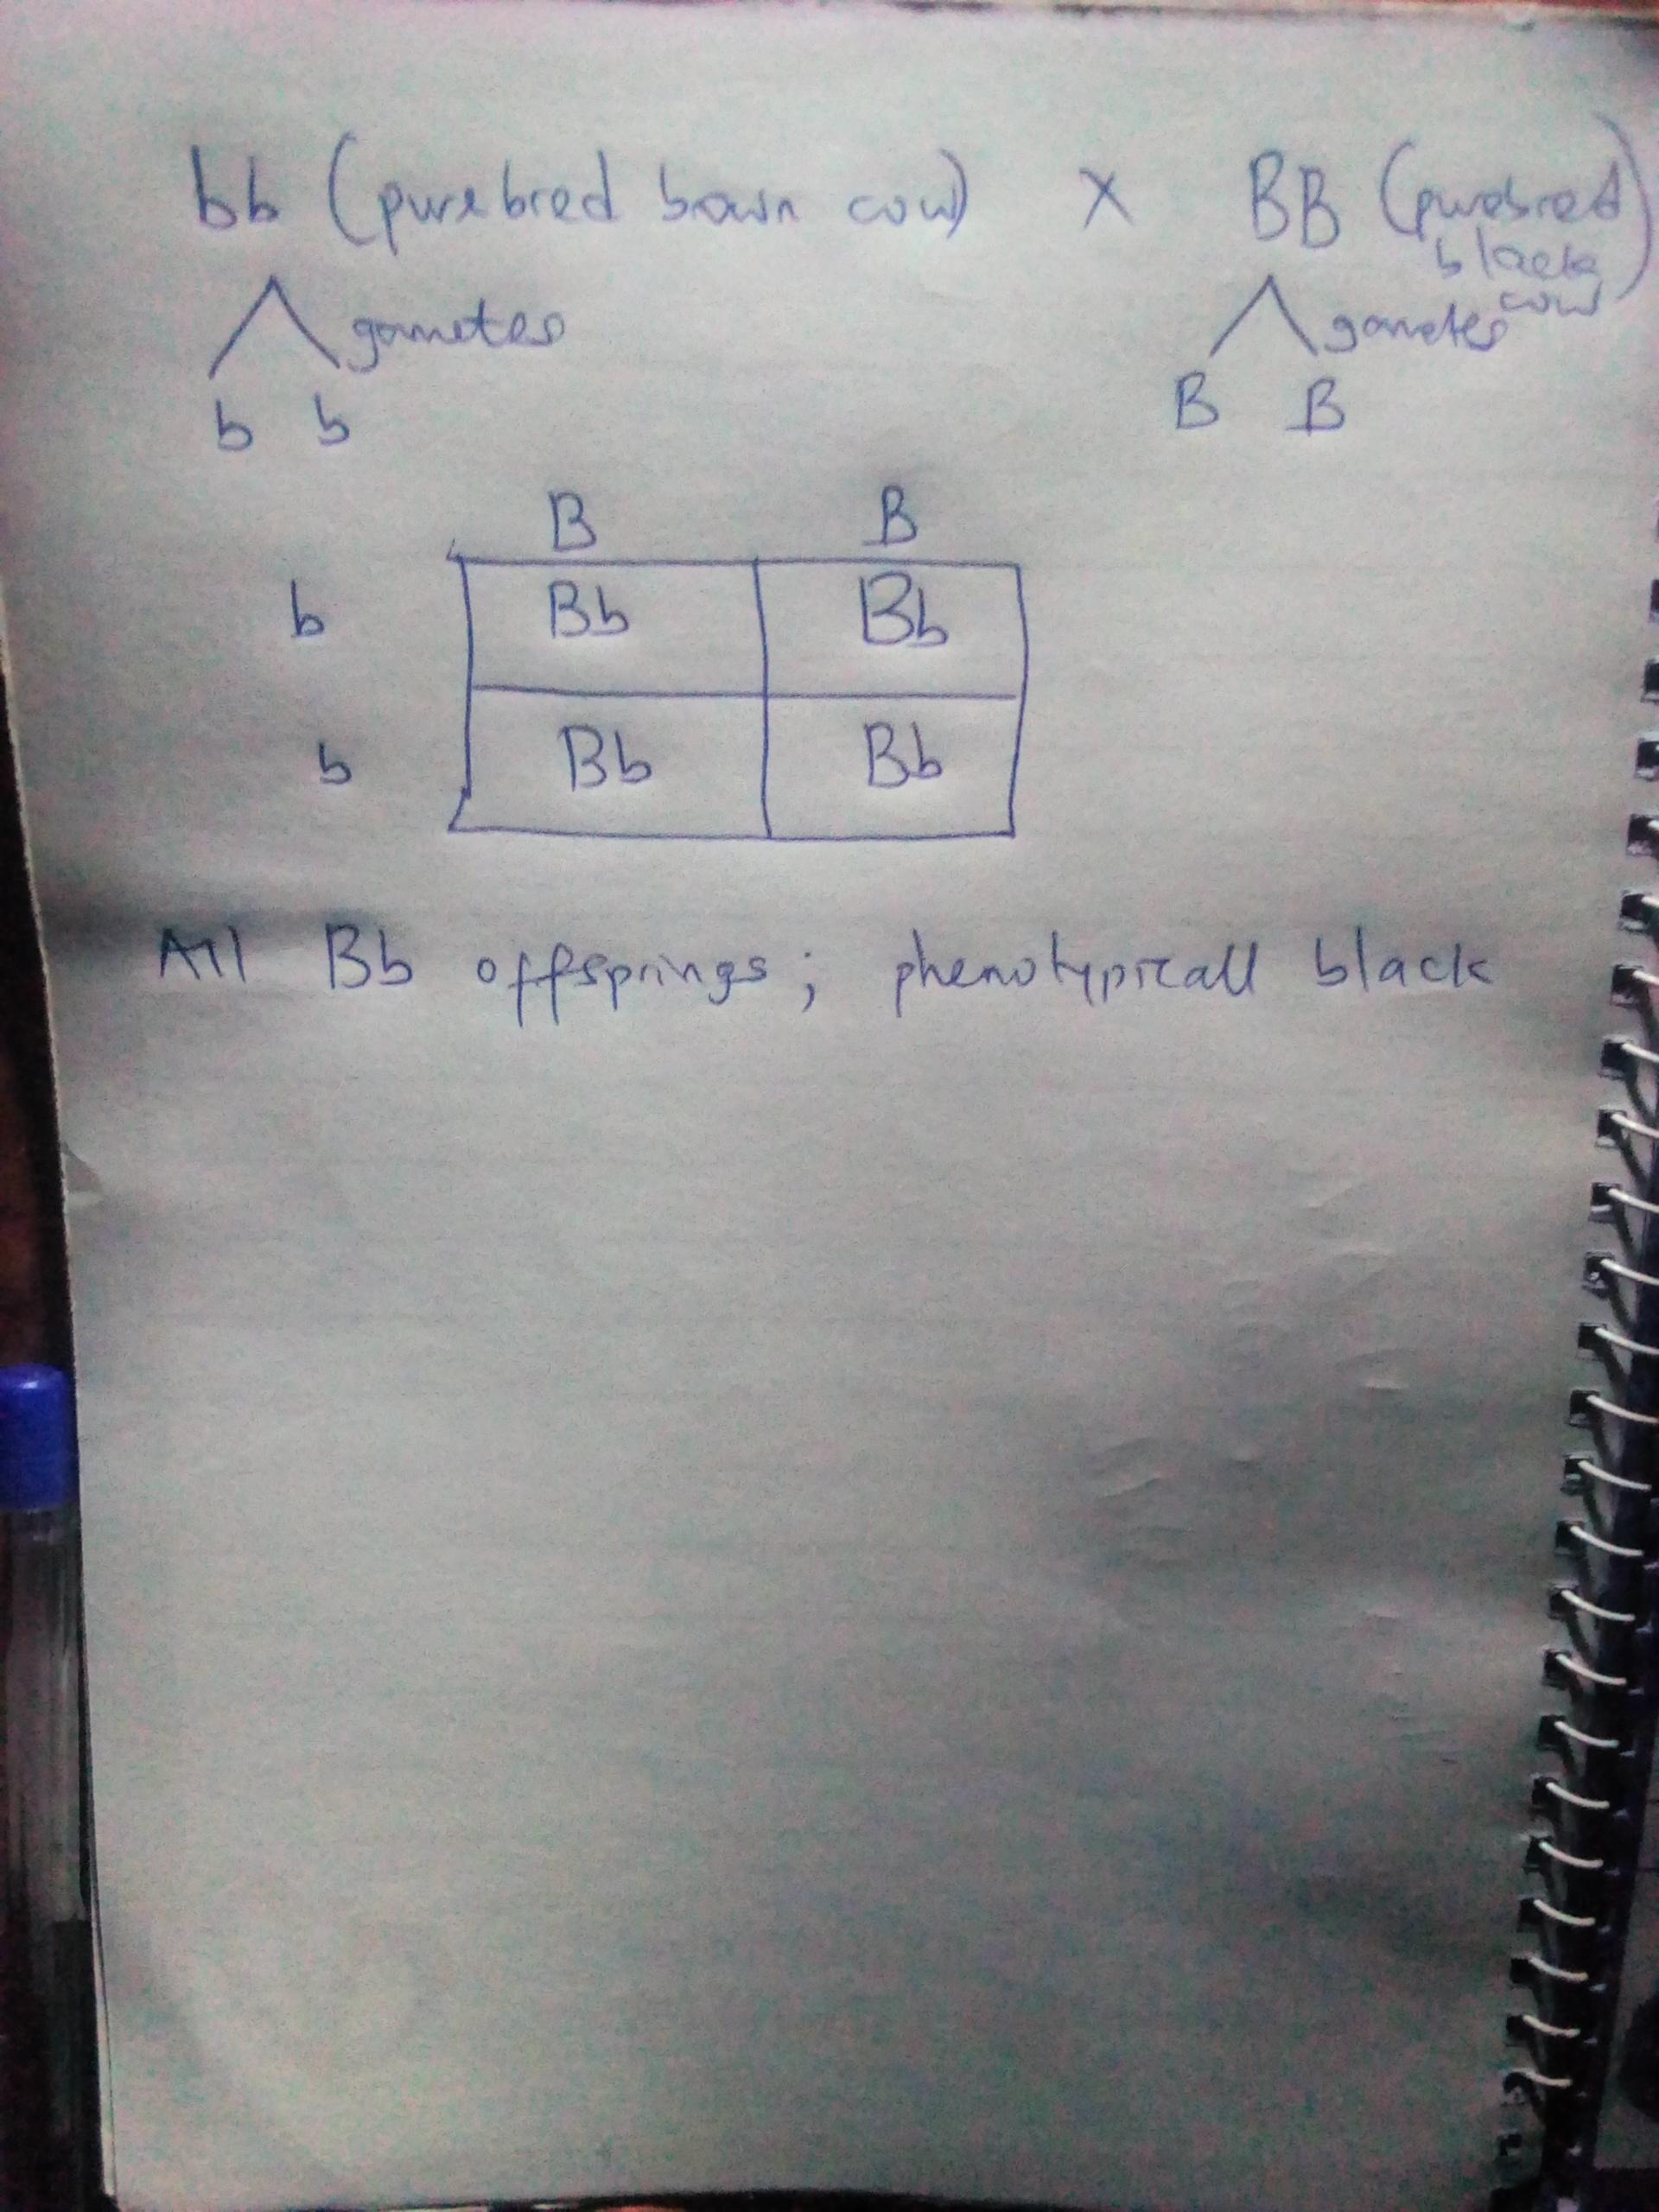 bb (purebred brown cow) X BB (purebred
black
cow)
gametes gametes
b b B B
B B
b Bb Bb
b Bb Bb
All Bb offsprings; phenotypicall black